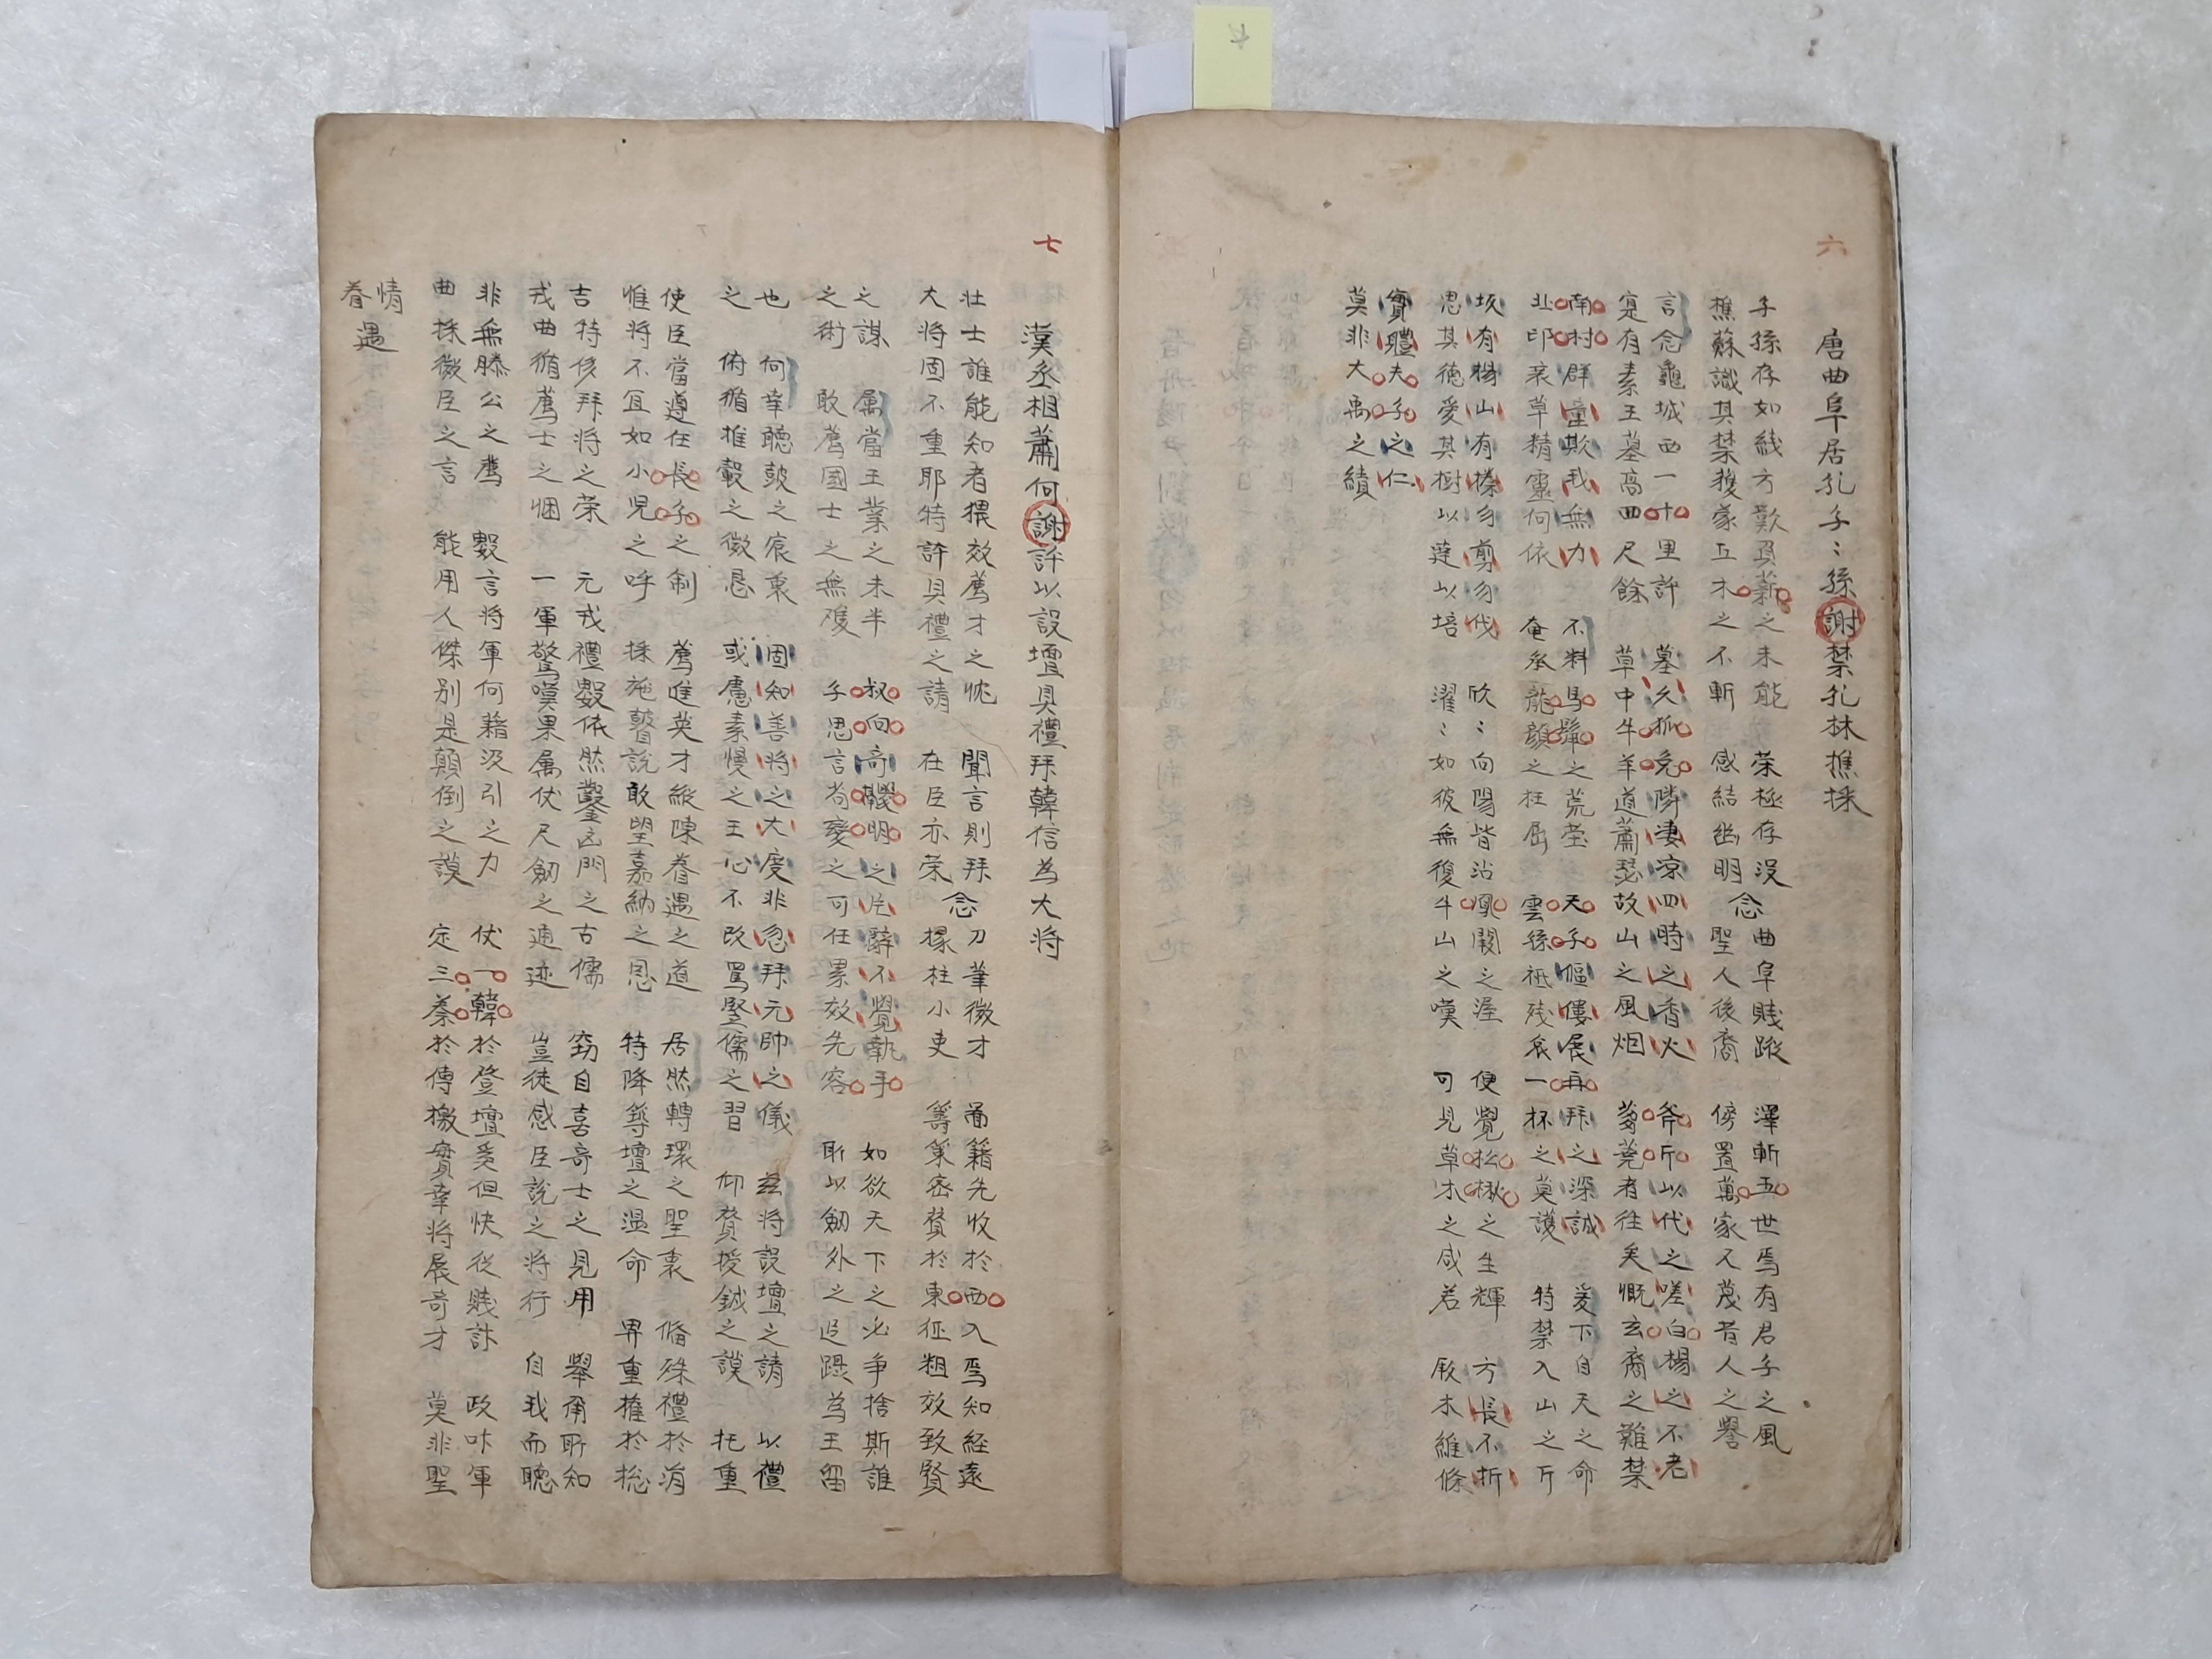 六
唐曲阜居孔子〻孫謝禁孔林樵採
子孫存如綫方歎負薪之未能 榮極存沒 念曲阜賤蹤 澤斬五世焉有君子之風
樵蘇識其禁獲蒙丘木之不斬 感結幽明 聖人後裔 傍置萬家人茂昔人之譽
言念龜城西一十里許 墓久狐兔隣凄凉四時之香火 斧斤以代之嗟白楊之不老
寔有素王墓高四尺餘 草中牛羊道蕭瑟故山之風烟 蒭蕘者往矣慨玄裔之難禁
南村群童欺我無力 不料馬鬣之荒塋 天子傴僂展再拜之深誠 爰下自天之命
北邙衰草精靈何依 奄委龍顔之枉屈 雲孫祗殘衰一抔之莫護 特禁入山之斤
坎有楊山有榛勿剪勿伐 欣〻向陽皆沾鳳闕之渥 便覺松楸之生輝 方長不折
思其德愛其樹以蓬以培 濯〻如彼無復牛山之嘆 可見草木之咸若 厥木維條
實體夫子之仁
莫非大禹之績
七
漢丞相蕭何謝許以設壇具禮拜韓信為大將
壯士誰能知者猥效薦才之忱 聞言則拜 念刀筆微才 啚籍先收於西入焉知經遠
大將固不重耶特許具禮之請 在臣亦榮 掾柱小吏 籌策密贊於東征粗效致賢
之謀 属當王業之未半 披向奇機明之片辭不覺執手 如欲天下之必爭捨斯誰
之術 敢薦國士之無雙 子思言苟變之可任累效先容 聊以劒外之追躡為王留
也 何幸聽鼓之宸衷 固知善將之大度非忽拜元帥之儀 玆將設壇之請 以禮
之 俯循推轂之微懇 或慮素慢之王心不改罵竪儒之習 仰贊授鉞之謨 托重
使臣當遵任長子之制 薦進英才縱陳眷遇之道 居然轉環之聖衷 脩殊禮於涓
惟將不宜如小兒之呼 採施瞽說敢望嘉納之恩 特降築壇之溫命 畀重權於摠
吉特侈拜將之榮 元戎禮數依然鑿凶門之古儒 窃自喜奇士之見用 擧甭所知
戎曲循薦士之悃 一軍驚嘆果属仗尺劒之逋迹 豈徒感臣說之將行 自我而聽
非無滕公之薦 數言將軍何藉汲引之力 仗一韓於登壇爰但快從賤計 政咋軍
曲採微臣之言 能用人傑別是顛倒之謨 定三秦於傳檄實幸將展奇才 莫非聖
情
眷遇